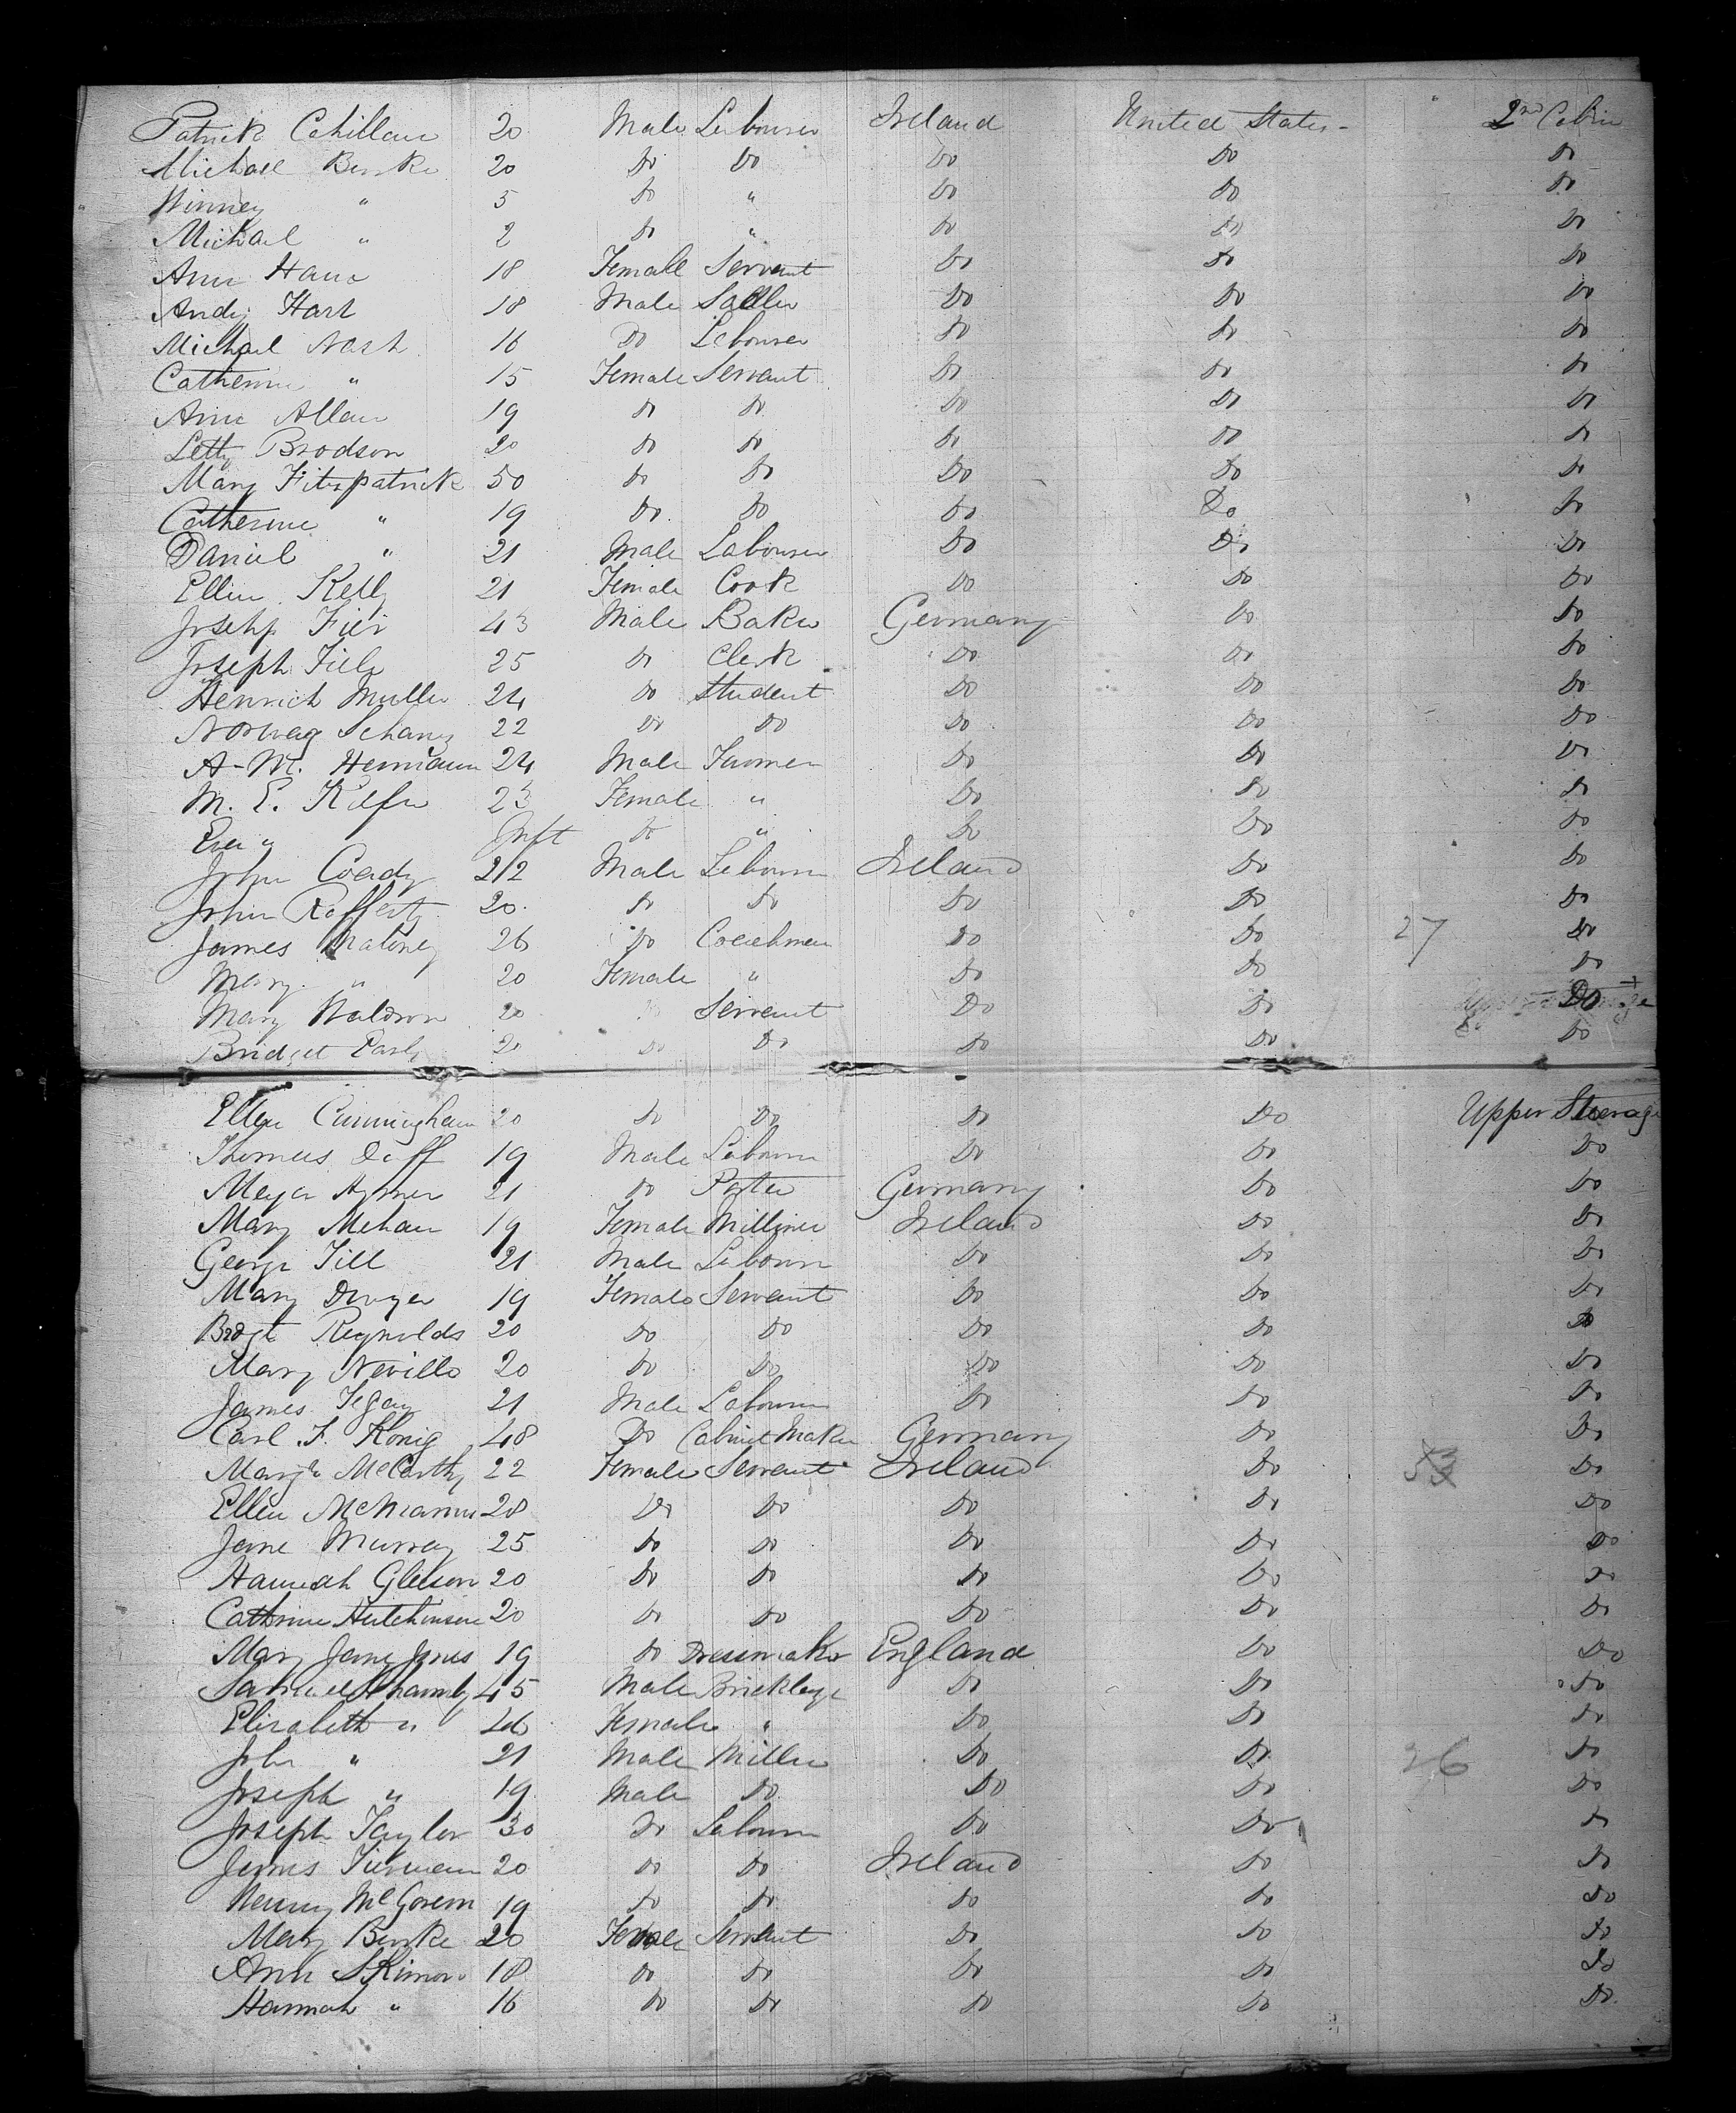 Patrick Cahillane 20 Male Labourer Ireland United States - 2nd Cabin
Michael Burke 20 Do Do Do Do Do
Winney " 5 Do " Do Do Do
Michael " 2 Do " Do Do Do
Ann Hana 18 Female Servant Do Do Do
Andy Hart 18 Male Sadler Do Do Do
Michael Nash 16 Do Labourer Do Do Do
Catherine " 15 Female Servant Do Do Do
Ann Allan 19 Do Do Do Do Do
Letty Brodson 20 Do Do Do Do Do
Mary Fitzpatrick 50 Do Do Do Do Do
Catherine " 19 Do Do Do Do Do
Daniel " 21 Male Labourer Do Do Do
Ellen Kelly 21 Female Cook Do Do Do
Josehp 43 Male Baker Germany Do Do
Joseph 25 Do Clerk Do Do Do
Henrich Muller 24 Do Student Do Do Do
Schanz 22 Do Do Do Do Do
A-M. Hermann 24 Male Farmer Do Do Do
M. E. 23 Female " Do Do Do
Eva " Inft Do " Do Do Do
John Coady 22 Male Labourer Ireland Do Do
John Rafferty 20 Do Do Do Do Do
James Maloney 26 Do Coachman Do Do 27 Do
Mary " 20 Female " Do Do Do
Mary Waldron 20 Do Servant Do Do Do
Bridget Early 20 Do Do Do Do Do
Ellen Cunningham 20 Do Do Do Do Upper Steerage
Thomas Duff 19 Male Labourer Do Do Do
Meyer 21 Do Porter Germany Do Do
Mary Mehan 19 Female Milliner Ireland Do Do
George Till 21 Male Labourer Do Do Do
Mary Dwyer 19 Female Servant Do Do Do
Bridgt Reynolds 20 Do Do Do Do Do
Mary Neville 20 Do Do Do Do Do
James Fegan 21 Male Labourer Do Do Do
Carl F. Konig 48 Do Cabinet Maker Germany Do Do
Margt McCarthy 22 Female Servant Ireland Do Do
Ellen McManus 28 Do Do Do Do Do
Jane Murray 25 Do Do Do Do Do
Hannah Gleeson 20 Do Do Do Do Do
Cathrine Hutchinson 20 Do Do Do Do Do
Mary Jane Jones 19 Do Dressmaker England Do Do
Samuel 45 Male Bricklayer Do Do Do
Elizabeth " 46 Female " Do Do Do
John " 21 Male Miller Do Do 26 Do
Joseph " 19 Male Do Do Do Do
Joseph Taylor 30 Do Labourer Do Do Do
James Tiernan 20 Do Do Ireland Do Do
Henry McGovern 19 Do Do Do Do Do
Mary Burke 20 Female Servant Do Do Do
Ann Skimor 18 Do Do Do Do Do
Hannah " 16 Do Do Do Do Do